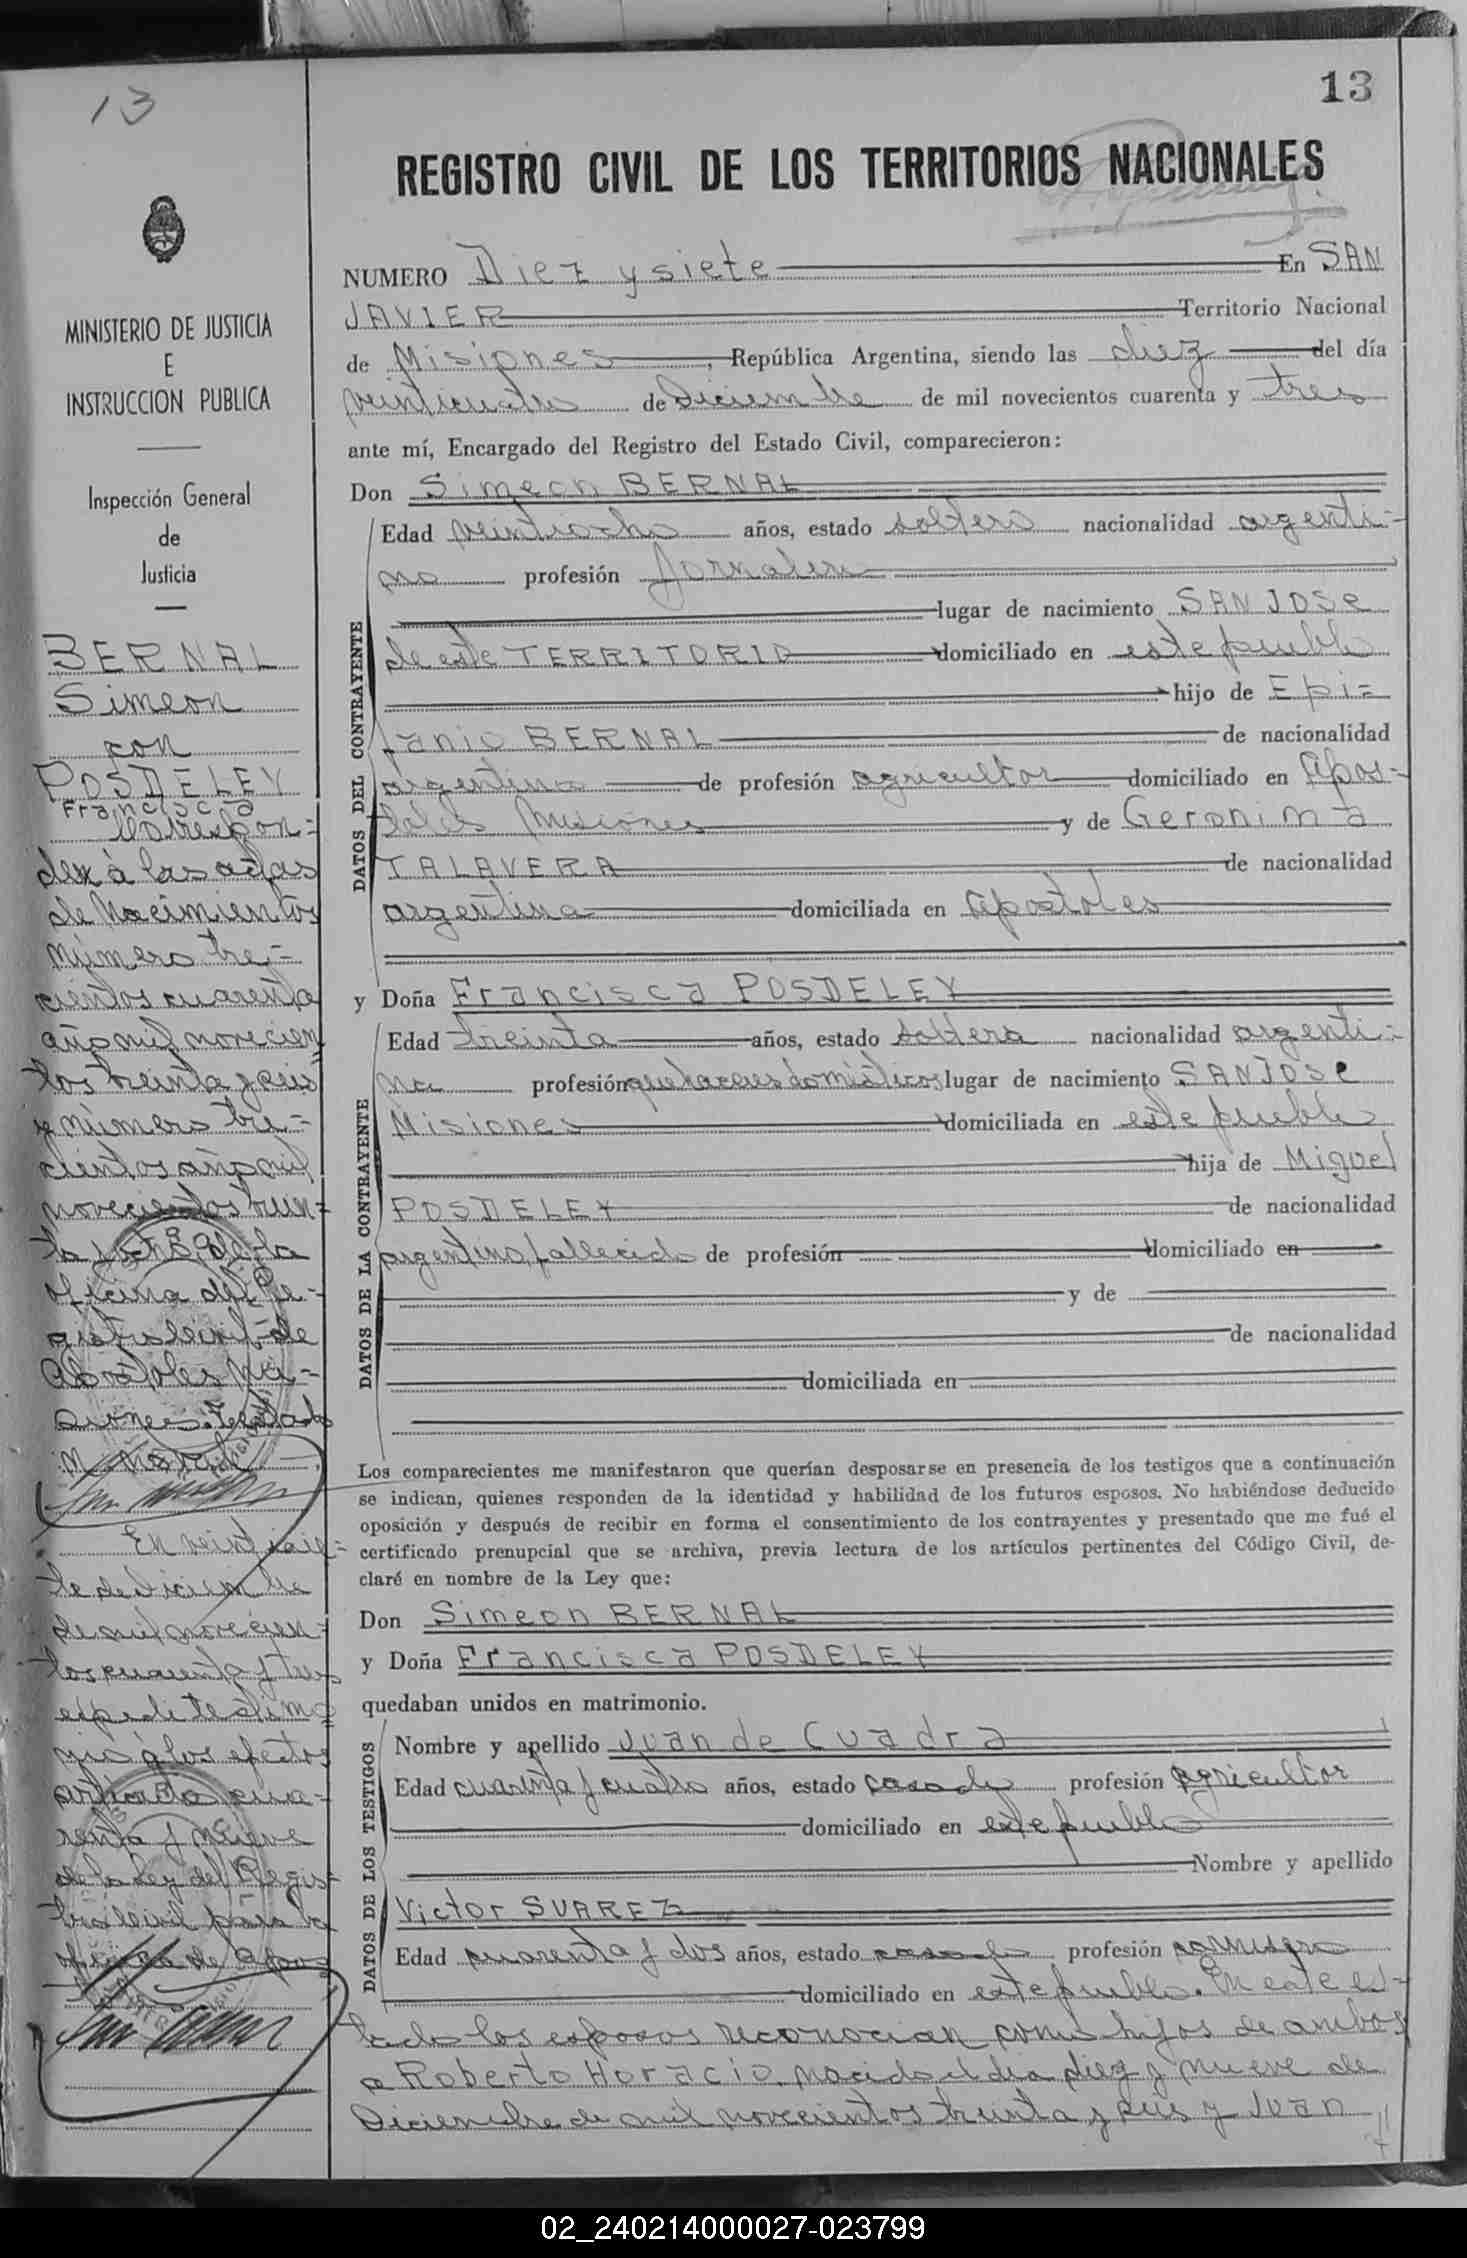 13
13
REGISTRO CIVIL DE LOS TERRITORIOS NACIONALES
MINISTERIO DE JUSTICIA
E
INSTRUCCION PUBLICA
Inspección General
de
Justicia
BERNAL
Simeon
con
POSDELEY
Francisca
Correspon=
den à las actas
de Nacimientos
número tre=
cientos cuarenta
año mil novecien
tos treinta y seis
y número tre=
cientos año mil
novecientos trein=
ta y ocho de la
oficina del Re=
gistro Civil de
Apóstoles Mi=
siones.
En veintisie=
te de Diciembre
de mil novecien=
tos cuarenta y tres
expedi testimo
nio a los efectos
articulo cua=
renta y nueve
de la Ley del Regis=
tro Civil para la
oficina de Apos
NUMERO Diez y siete En SAN
JAVIER Territorio Nacional
de Misiones, República Argentina, siendo las diez del día
veinticuatro de Diciembre de mil novecientos cuarenta y tres
ante mí, Encargado del Registro del Estado Civil, comparecieron:
Don Simeon BERNAL
DATOS DEL CONTRAYENTE
Edad veintiocho años, estado soltero nacionalidad argenti=
no profesión Jornalero
lugar de nacimiento SAN JOSe
de este TERRITORIO domiciliado en este pueblo
hijo de Epi=
fanio BERNAL de nacionalidad
argentino de profesión agricultor domiciliado en Apos=
toles Misiones y de Geronima
TALAVERA de nacionalidad
argentina domiciliada en Apostoles
y Doña Francisca POSDELEY
DATOS DE LA CONTRAYENTE
Edad treinta años, estado soltera nacionalidad argenti=
na profesión quehaceres domésticos lugar de nacimiento SAN JOSe
Misiones domiciliada en este pueblo
hija de Miguel
POSDELEY de nacionalidad
argentino, fallecido de profesión domiciliado en
y de
de nacionalidad
domiciliada en
Los comparecientes me manifestaron que querían desposarse en presencia de los testigos que a continuación
se indican, quienes responden de la identidad y habilidad de los futuros esposos. No habiéndose deducido
oposición y después de recibir en forma el consentimiento de los contrayentes y presentado que me fué el
certificado prenupcial que se archiva, previa lectura de los artículos pertinentes del Código Civil, de-
claré en nombre de la Ley que:
Don Simeon BERNAL
y Doña Francisca POSDELEY
quedaban unidos en matrimonio.
DATOS DE LOS TESTIGOS
Nombre y apellido Juan de Cuadra
Edad cuarenta y cuatro años, estado casado profesión agricultor
domiciliado en este pueblo
Nombre y apellido
Victor SUAREZ
Edad cuarenta y dos años, estado casado profesión
domiciliado en este pueblo. En este es=
tado los esposos reconocian como hijos de ambos
a Roberto Horacio, nacido el dia diez y nueve de
Diciembre de mil novecientos treinta y seis y Juan
02_240214000027-023799